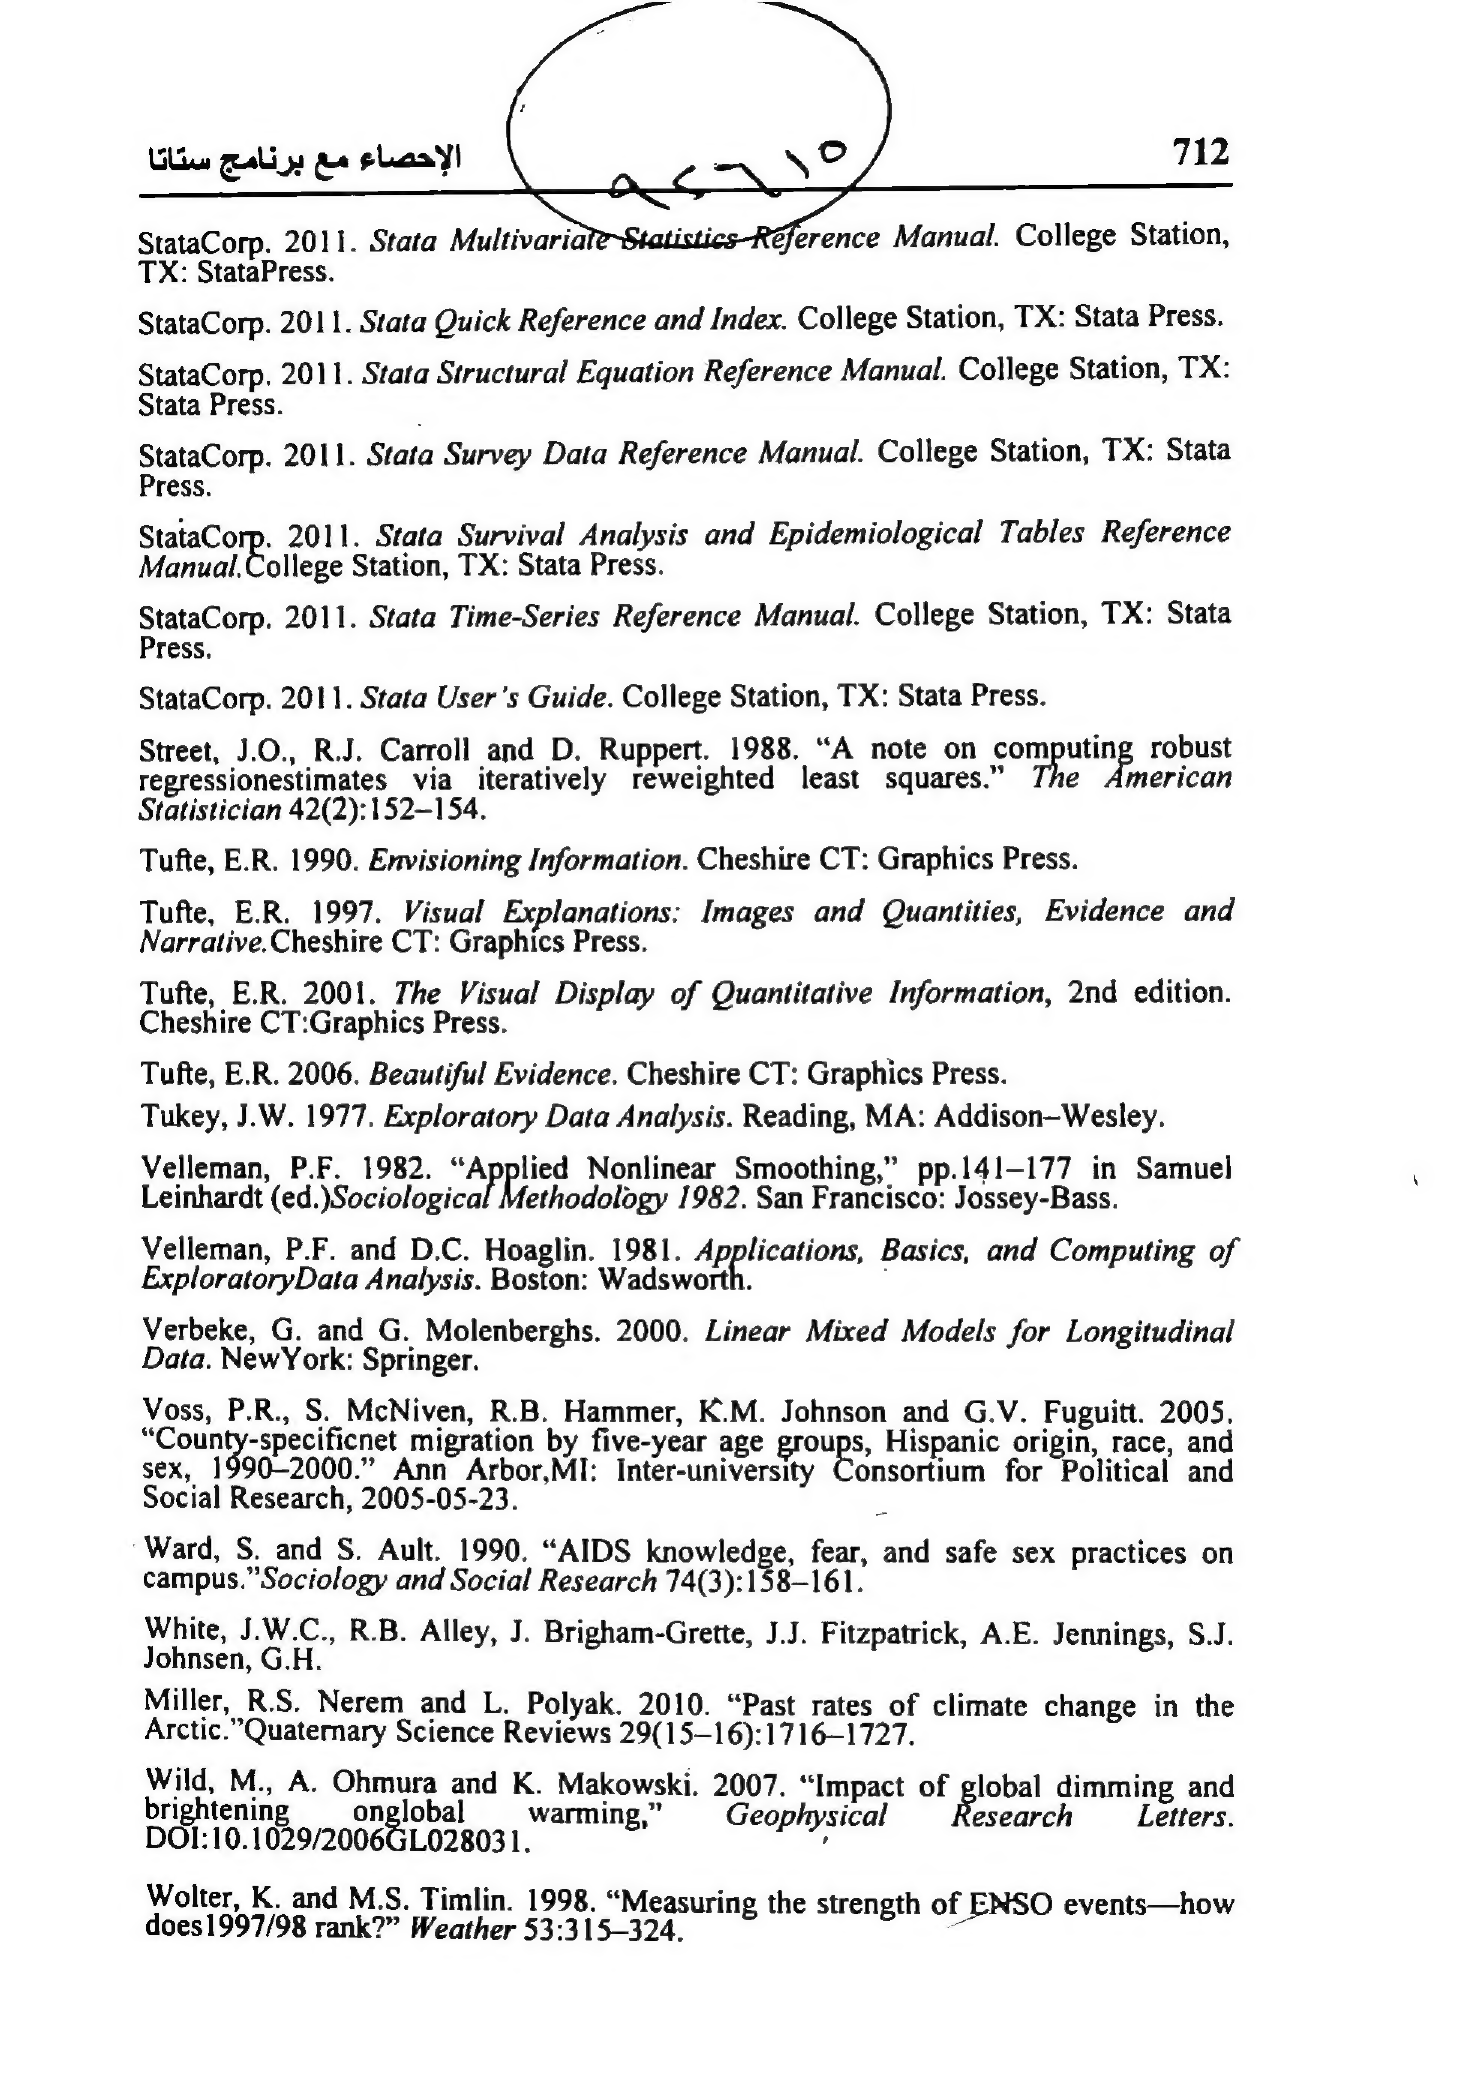 الإحصاء مع برنامج ستاتا
712
StataCorp. 2011. Stata Multivariate Statistics Reference Manual. College Station,
TX: StataPress.
StataCorp. 2011. Stata Quick Reference and Index. College Station, TX: Stata Press.
StataCorp. 2011. Stata Structural Equation Reference Manual. College Station, TX:
Stata Press.
StataCorp. 2011. Stata Survey Data Reference Manual. College Station, TX: Stata
Press.
StataCorp. 2011. Stata Survival Analysis and Epidemiological Tables Reference
Manual.College Station, TX: Stata Press.
StataCorp. 2011. Stata Time-Series Reference Manual. College Station, TX: Stata
Press.
StataCorp. 2011. Stata User's Guide. College Station, TX: Stata Press.
Street, J.O., R.J. Carroll and D. Ruppert. 1988. “A note on computing robust
regressionestimates via iteratively reweighted least squares.” The American
Statistician 42(2):152–154.
Tufte, E.R. 1990. Envisioning Information. Cheshire CT: Graphics Press.
Tufte, E.R. 1997. Visual Explanations: Images and Quantities, Evidence and
Narrative.Cheshire CT: Graphics Press.
Tufte, E.R. 2001. The Visual Display of Quantitative Information, 2nd edition.
Cheshire CT:Graphics Press.
Tufte, E.R. 2006. Beautiful Evidence. Cheshire CT: Graphics Press.
Tukey, J.W. 1977. Exploratory Data Analysis. Reading, MA: Addison–Wesley.
Velleman, P.F. 1982. “Applied Nonlinear Smoothing,” pp.141–177 in Samuel
Leinhardt (ed.)Sociological Methodology 1982. San Francisco: Jossey-Bass.
Velleman, P.F. and D.C. Hoaglin. 1981. Applications, Basics, and Computing of
ExploratoryData Analysis. Boston: Wadsworth.
Verbeke, G. and G. Molenberghs. 2000. Linear Mixed Models for Longitudinal
Data. NewYork: Springer.
Voss, P.R., S. McNiven, R.B. Hammer, K.M. Johnson and G.V. Fuguitt. 2005.
“County-specificnet migration by five-year age groups, Hispanic origin, race, and
sex, 1990–2000.” Ann Arbor,MI: Inter-university Consortium for Political and
Social Research, 2005-05-23.
Ward, S. and S. Ault. 1990. “AIDS knowledge, fear, and safe sex practices on
campus.”Sociology and Social Research 74(3):158–161.
White, J.W.C., R.B. Alley, J. Brigham-Grette, J.J. Fitzpatrick, A.E. Jennings, S.J.
Johnsen, G.H.
Miller, R.S. Nerem and L. Polyak. 2010. “Past rates of climate change in the
Arctic.”Quaternary Science Reviews 29(15–16):1716–1727.
Wild, M., A. Ohmura and K. Makowski. 2007. “Impact of global dimming and
brightening onglobal warming,” Geophysical Research Letters.
DOI:10.1029/2006GL028031.
Wolter, K. and M.S. Timlin. 1998. “Measuring the strength of ENSO events—how
does1997/98 rank?” Weather 53:315–324.